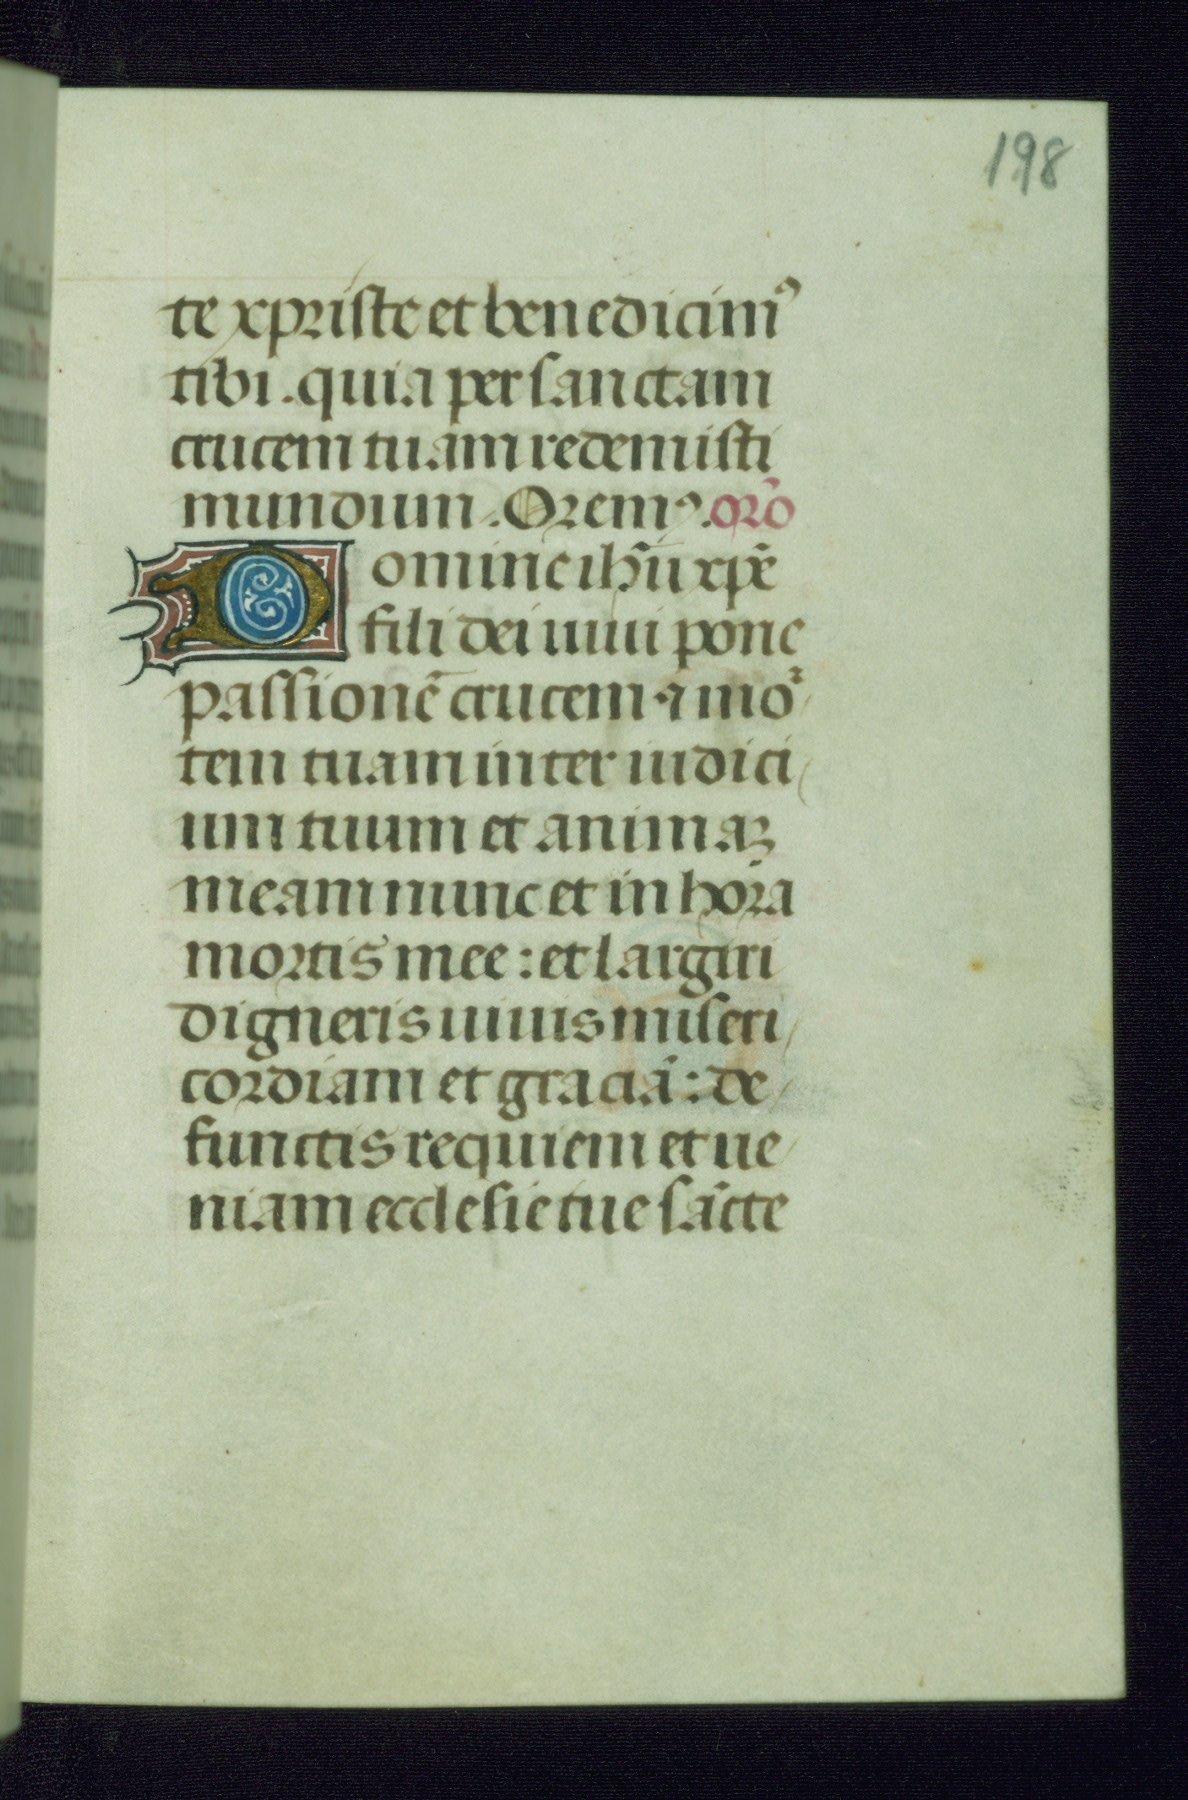 198
te xpriste et benedicimꝰ
tibi . quia per sanctam
crucem tuam redemisti
mundum . Oremꝰ . orō
Domine ihū xp̄e
fili dei uiui pone
passionē crucem ⁊ mor̄
tem tuam inter iudici
um tuum et animaꝫ
meam nunc et in hora
mortis mee : et largiri
digneris uiuis miseri
cordiam et graciā : de
functis requiem et ue
niam ecclesie tue sācte